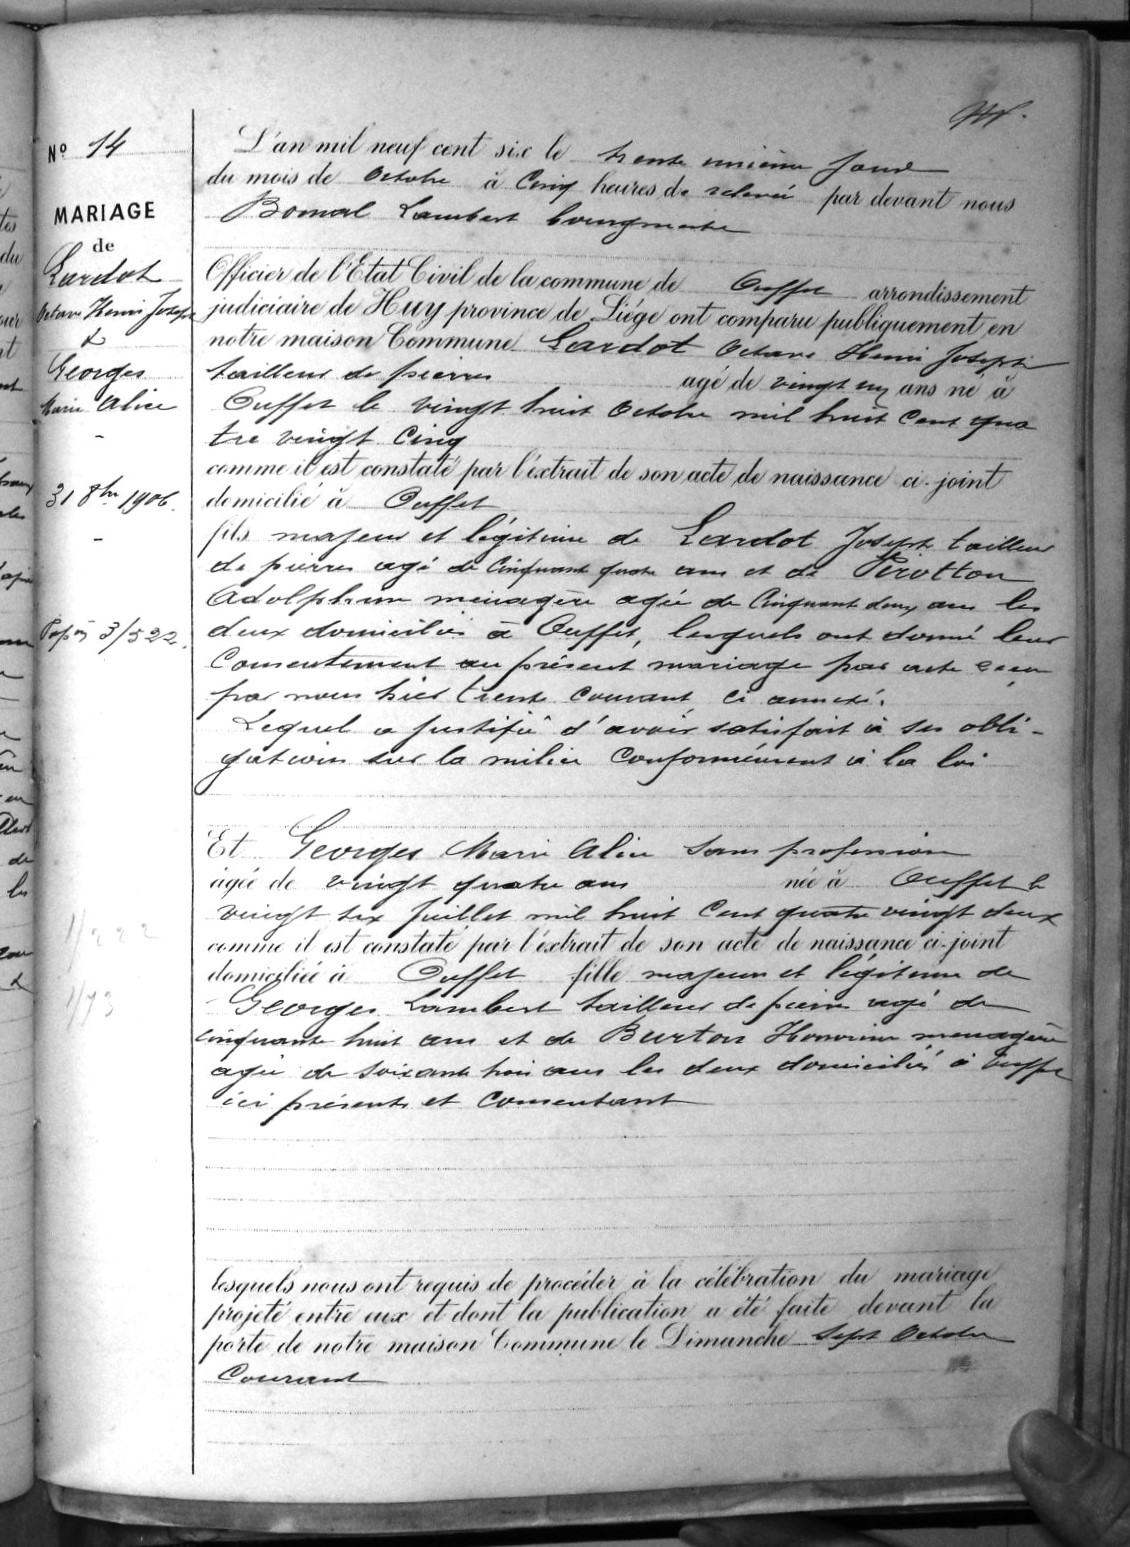 Nº 14
MARIAGE
de
Lardot
Octave Henri Joseph
&
Georges
Marie Alice
-
31 8bre 1906.
-
3/522.
1/222
1/73
L'an mil neuf cent six le trente unième jour
du mois de Octobre à Cinq heures de relevée par devant nous
Bomal Lambert bourgmestre
Officier de l'Etat Civil de la commune de Ouffet arrondissement
judiciaire de Huy province de Liége ont comparu publiquement en
notre maison Commune Lardot Octave Henri Joseph
tailleur de pierres agé de vingt un ans né à
Ouffet le vingt huit Octobre mil huit cent qua
tre vingt cinq
comme il est constaté par l'éxtrait de son acte de naissance ci-joint
domicilié à Ouffet
fils majeur et légitime de Lardot Joseph tailleur
de pierres agé de Cinquante quatre ans et de Pirotton
Adolphine ménagère agée de Cinquante deux ans les
deux domiciliés à Ouffet, lesquels ont donné leur
Consentement au présent mariage par acte reçu
par nous hier trente courant, ci annexé.
Lequel a justifié d'avoir satisfait à ses obli-
gations sur la milice Conformément à la loi
Et Georges Marie Alice Sans profession
âgée de vingt quatre ans née à Ouffet le
vingt six juillet mil huit Cent quatre vingt deux
comme il est constaté par l'éxtrait de son acte de naissance ci-joint
domiciliée à Ouffet fille majeure et légitime de
Georges Lambert tailleur de pierre agé de
cinquante huit ans et de Burton Honorine menagère
agée de soixante trois ans les deux domiciliés à Ouffet
ici présents et consentant
lesquels nous ont requis de procéder à la célébration du mariage
projeté entre eux et dont la publication a été faite devant la
porte de notre maison Commune le Dimanche Sept Octobre
Courant